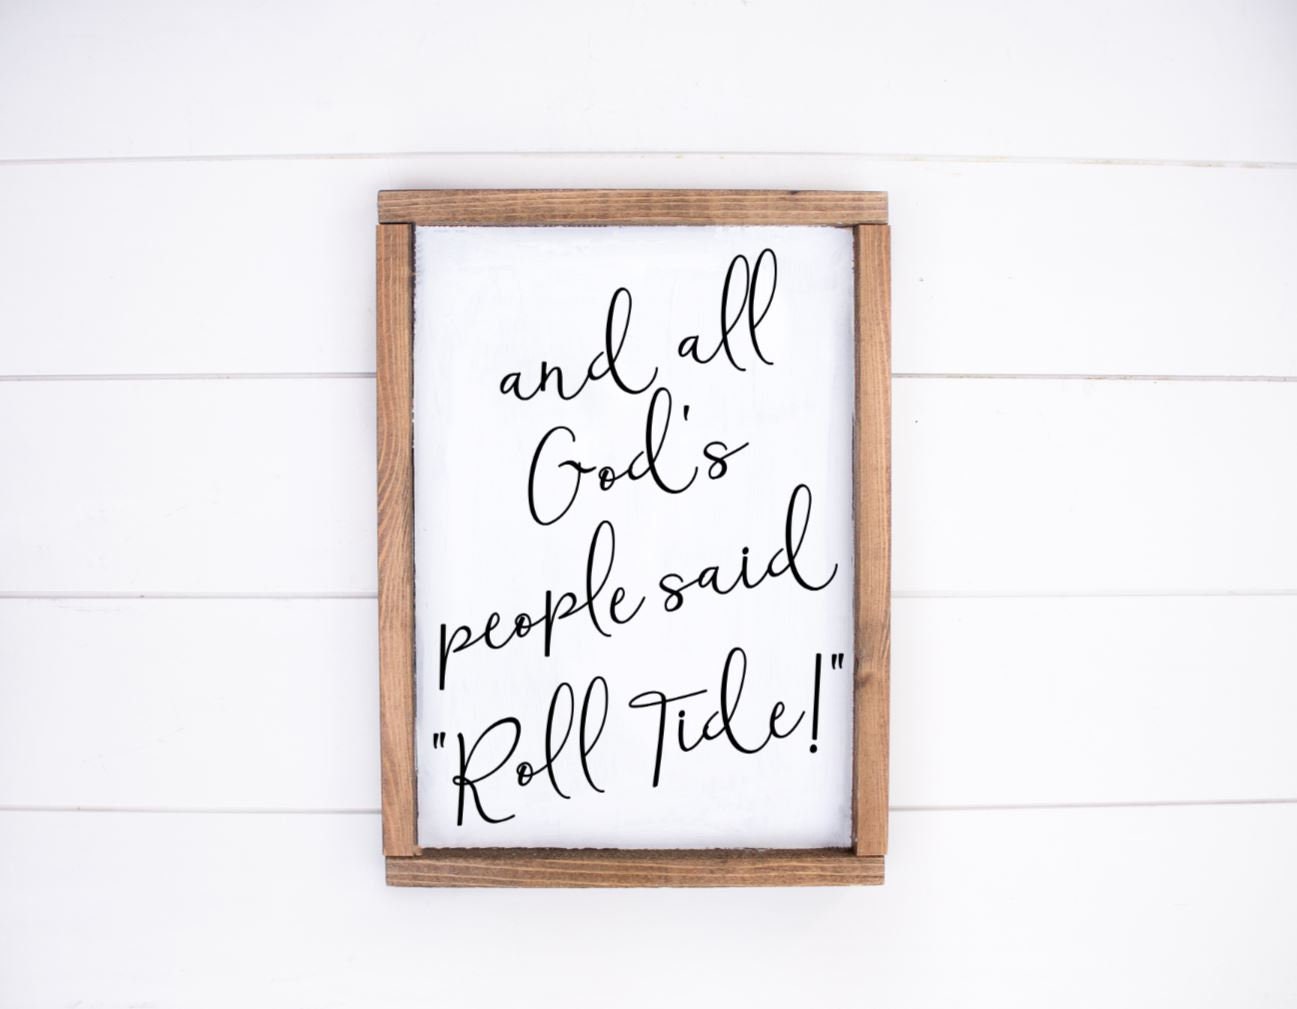 and all
God's
people said
"Roll Tide!"